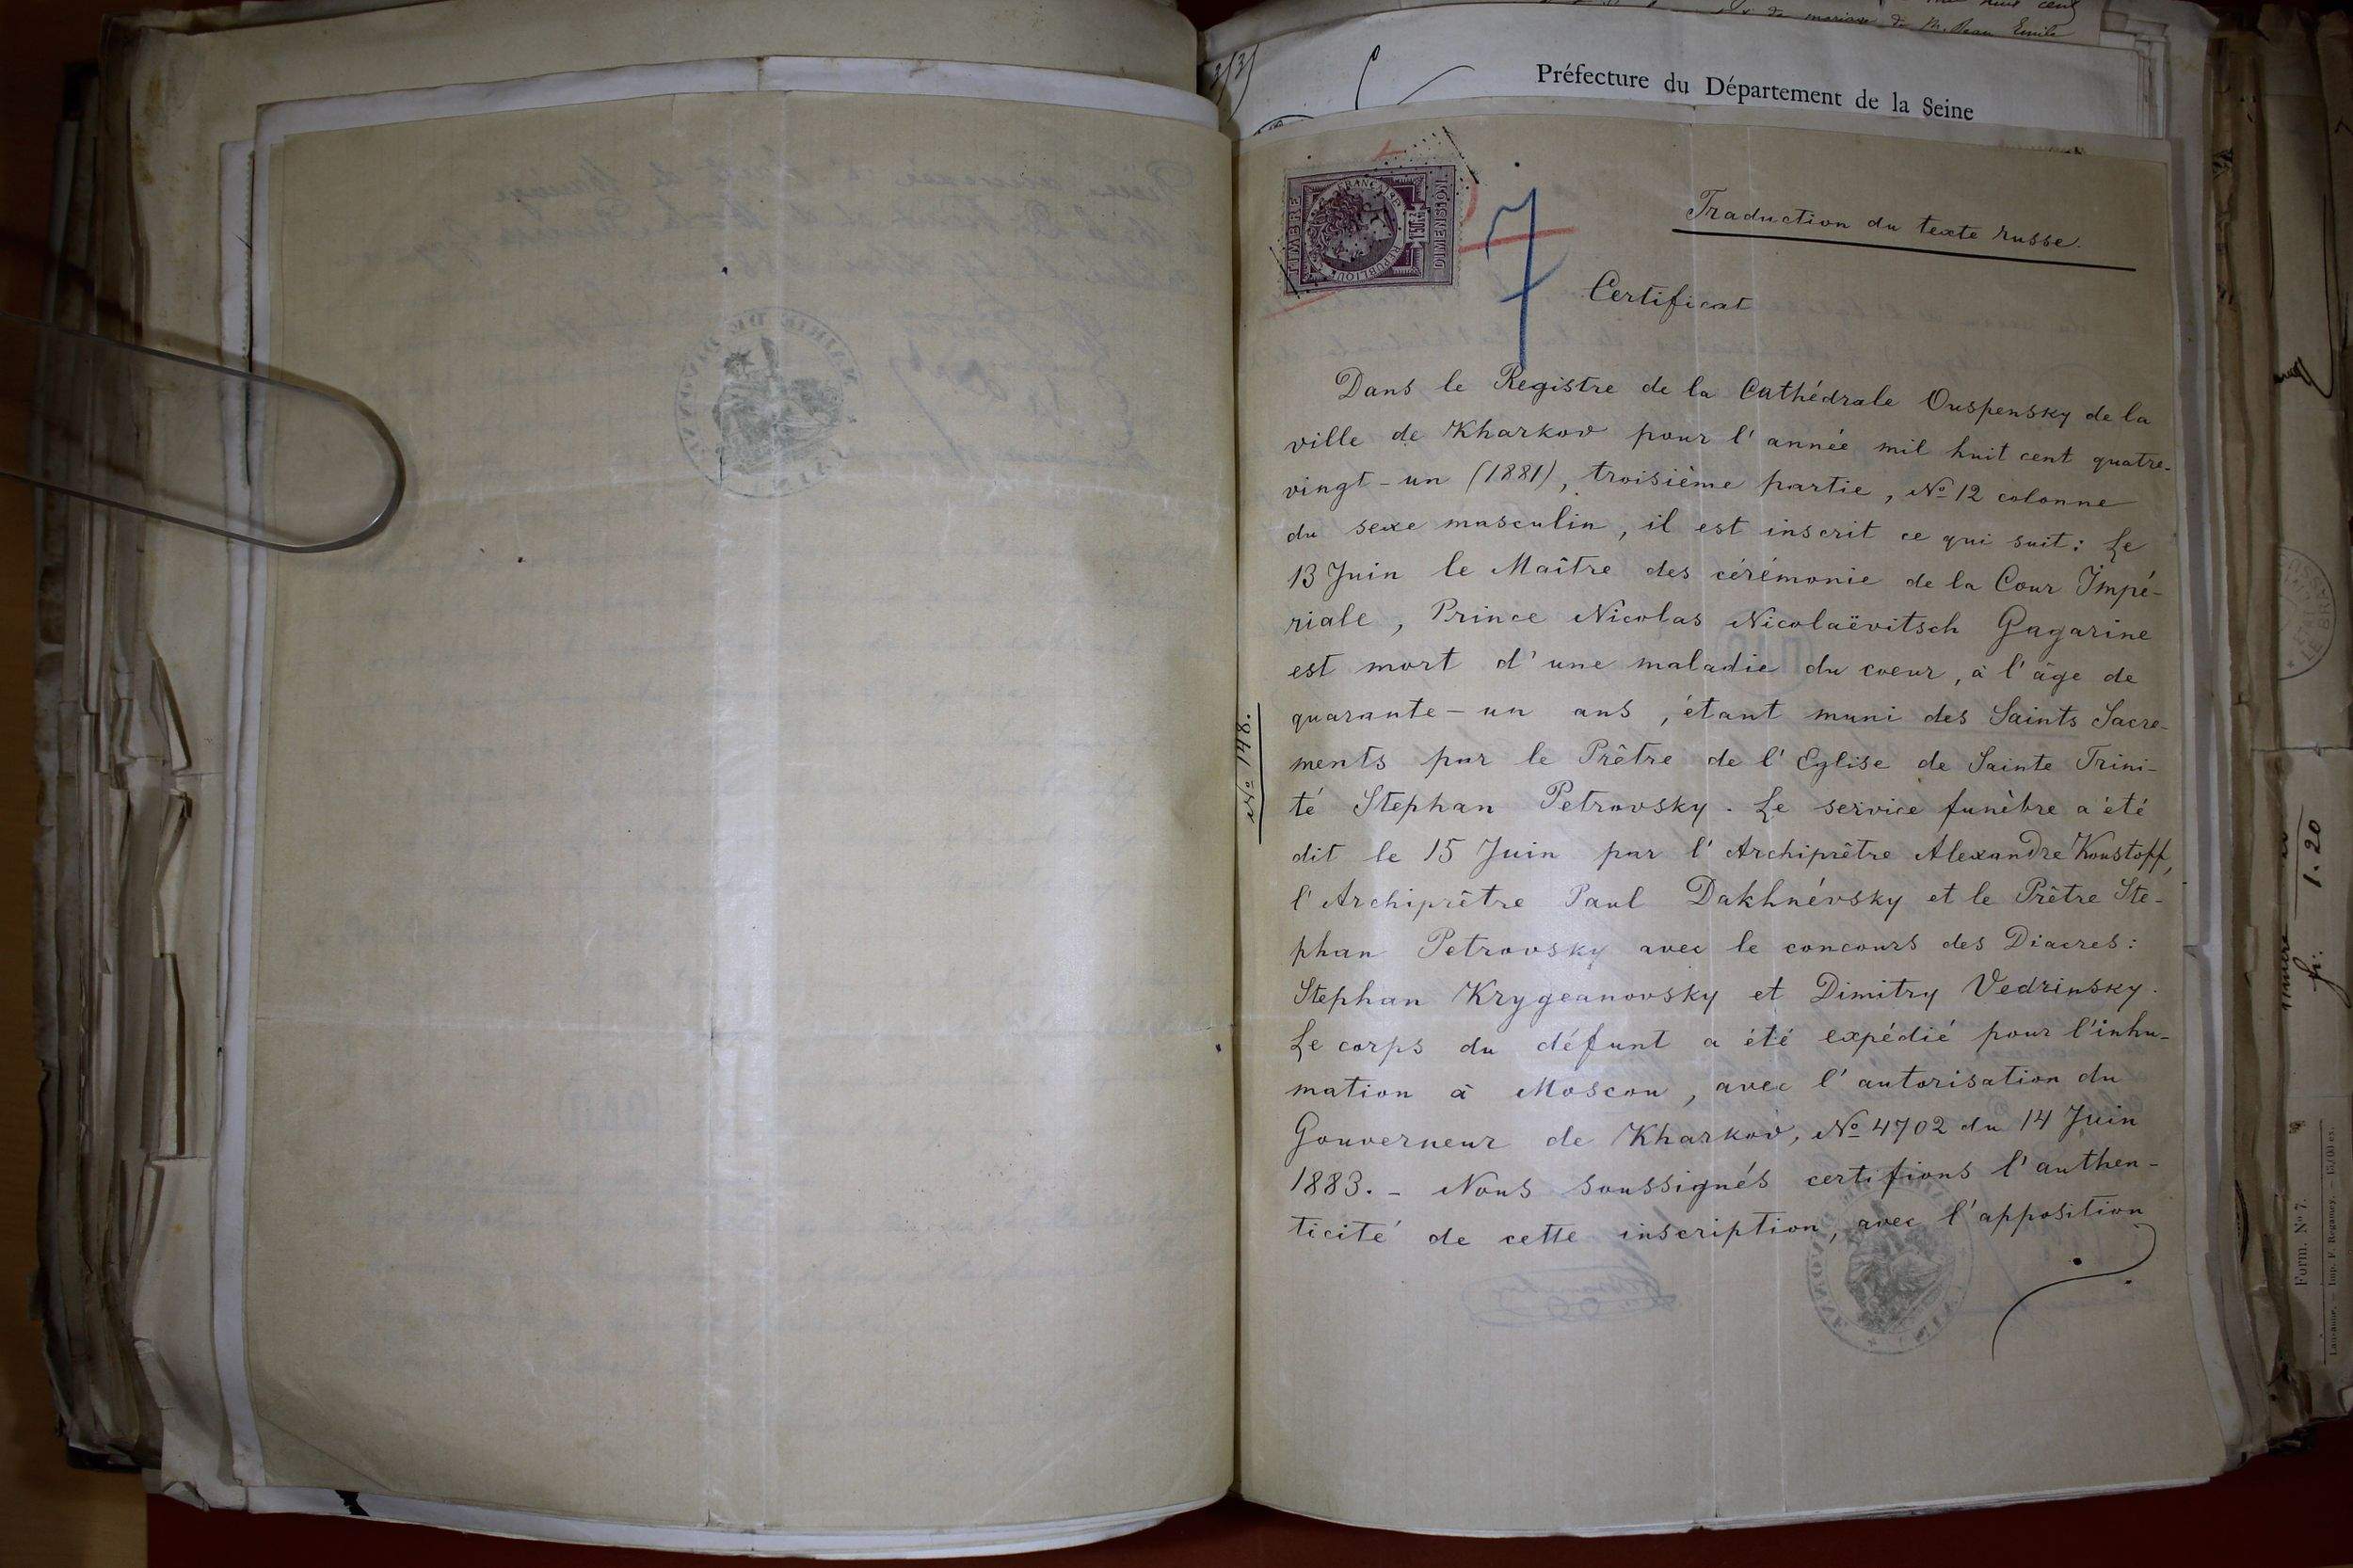 Préfecture du Département de la Seine
TIMBRE
RÉPUBLIQUE FRANÇAISE
DIMENSION
7
Traduction du texte russe.
Certificat
Dans le Registre de la Cathédrale Ouspensky de la
ville de Kharkov pour l'année mil huit cent quatre-
vingt-un (1881), troisième partie, № 12 colonne
du sexe masculin, il est inscrit ce qui suit: Le
13 Juin le Maître des cérémonie de la Cour Impé-
riale, Prince Nicolas Nicolaëvitsch Gagarine
est mort d'une maladie du coeur, à l'âge de
quarante-un ans, étant muni des Saints Sacre-
ments par le Prêtre de l'Eglise de Sainte Trini-
té Stephan Petrovsky. Le service funèbre a été
dit le 15 Juin par l'Archiprêtre Alexandre Koustoff,
l'Archiprêtre Paul Dakhnévsky et le Prêtre Ste-
phan Petrovsky avec le concours des Diacres:
Stephan Krygeanovsky et Dimitry Vedrinsky.
Le corps du défunt a été expédié pour l'inhu-
mation à Moscou, avec l'autorisation du
Gouverneur de Kharkov, № 4702 du 14 Juin
1883. - Nous soussignés certifions l'authen-
ticité de cette inscription, avec l'apposition
№ 148.
fr. 1.20
Form. N° 7.